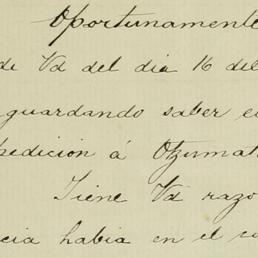 Oportunamente
de Vd del dia 16 del
guardando saber el
pedicion á Otzumat
Tiene Vd razo
cia habia en el co